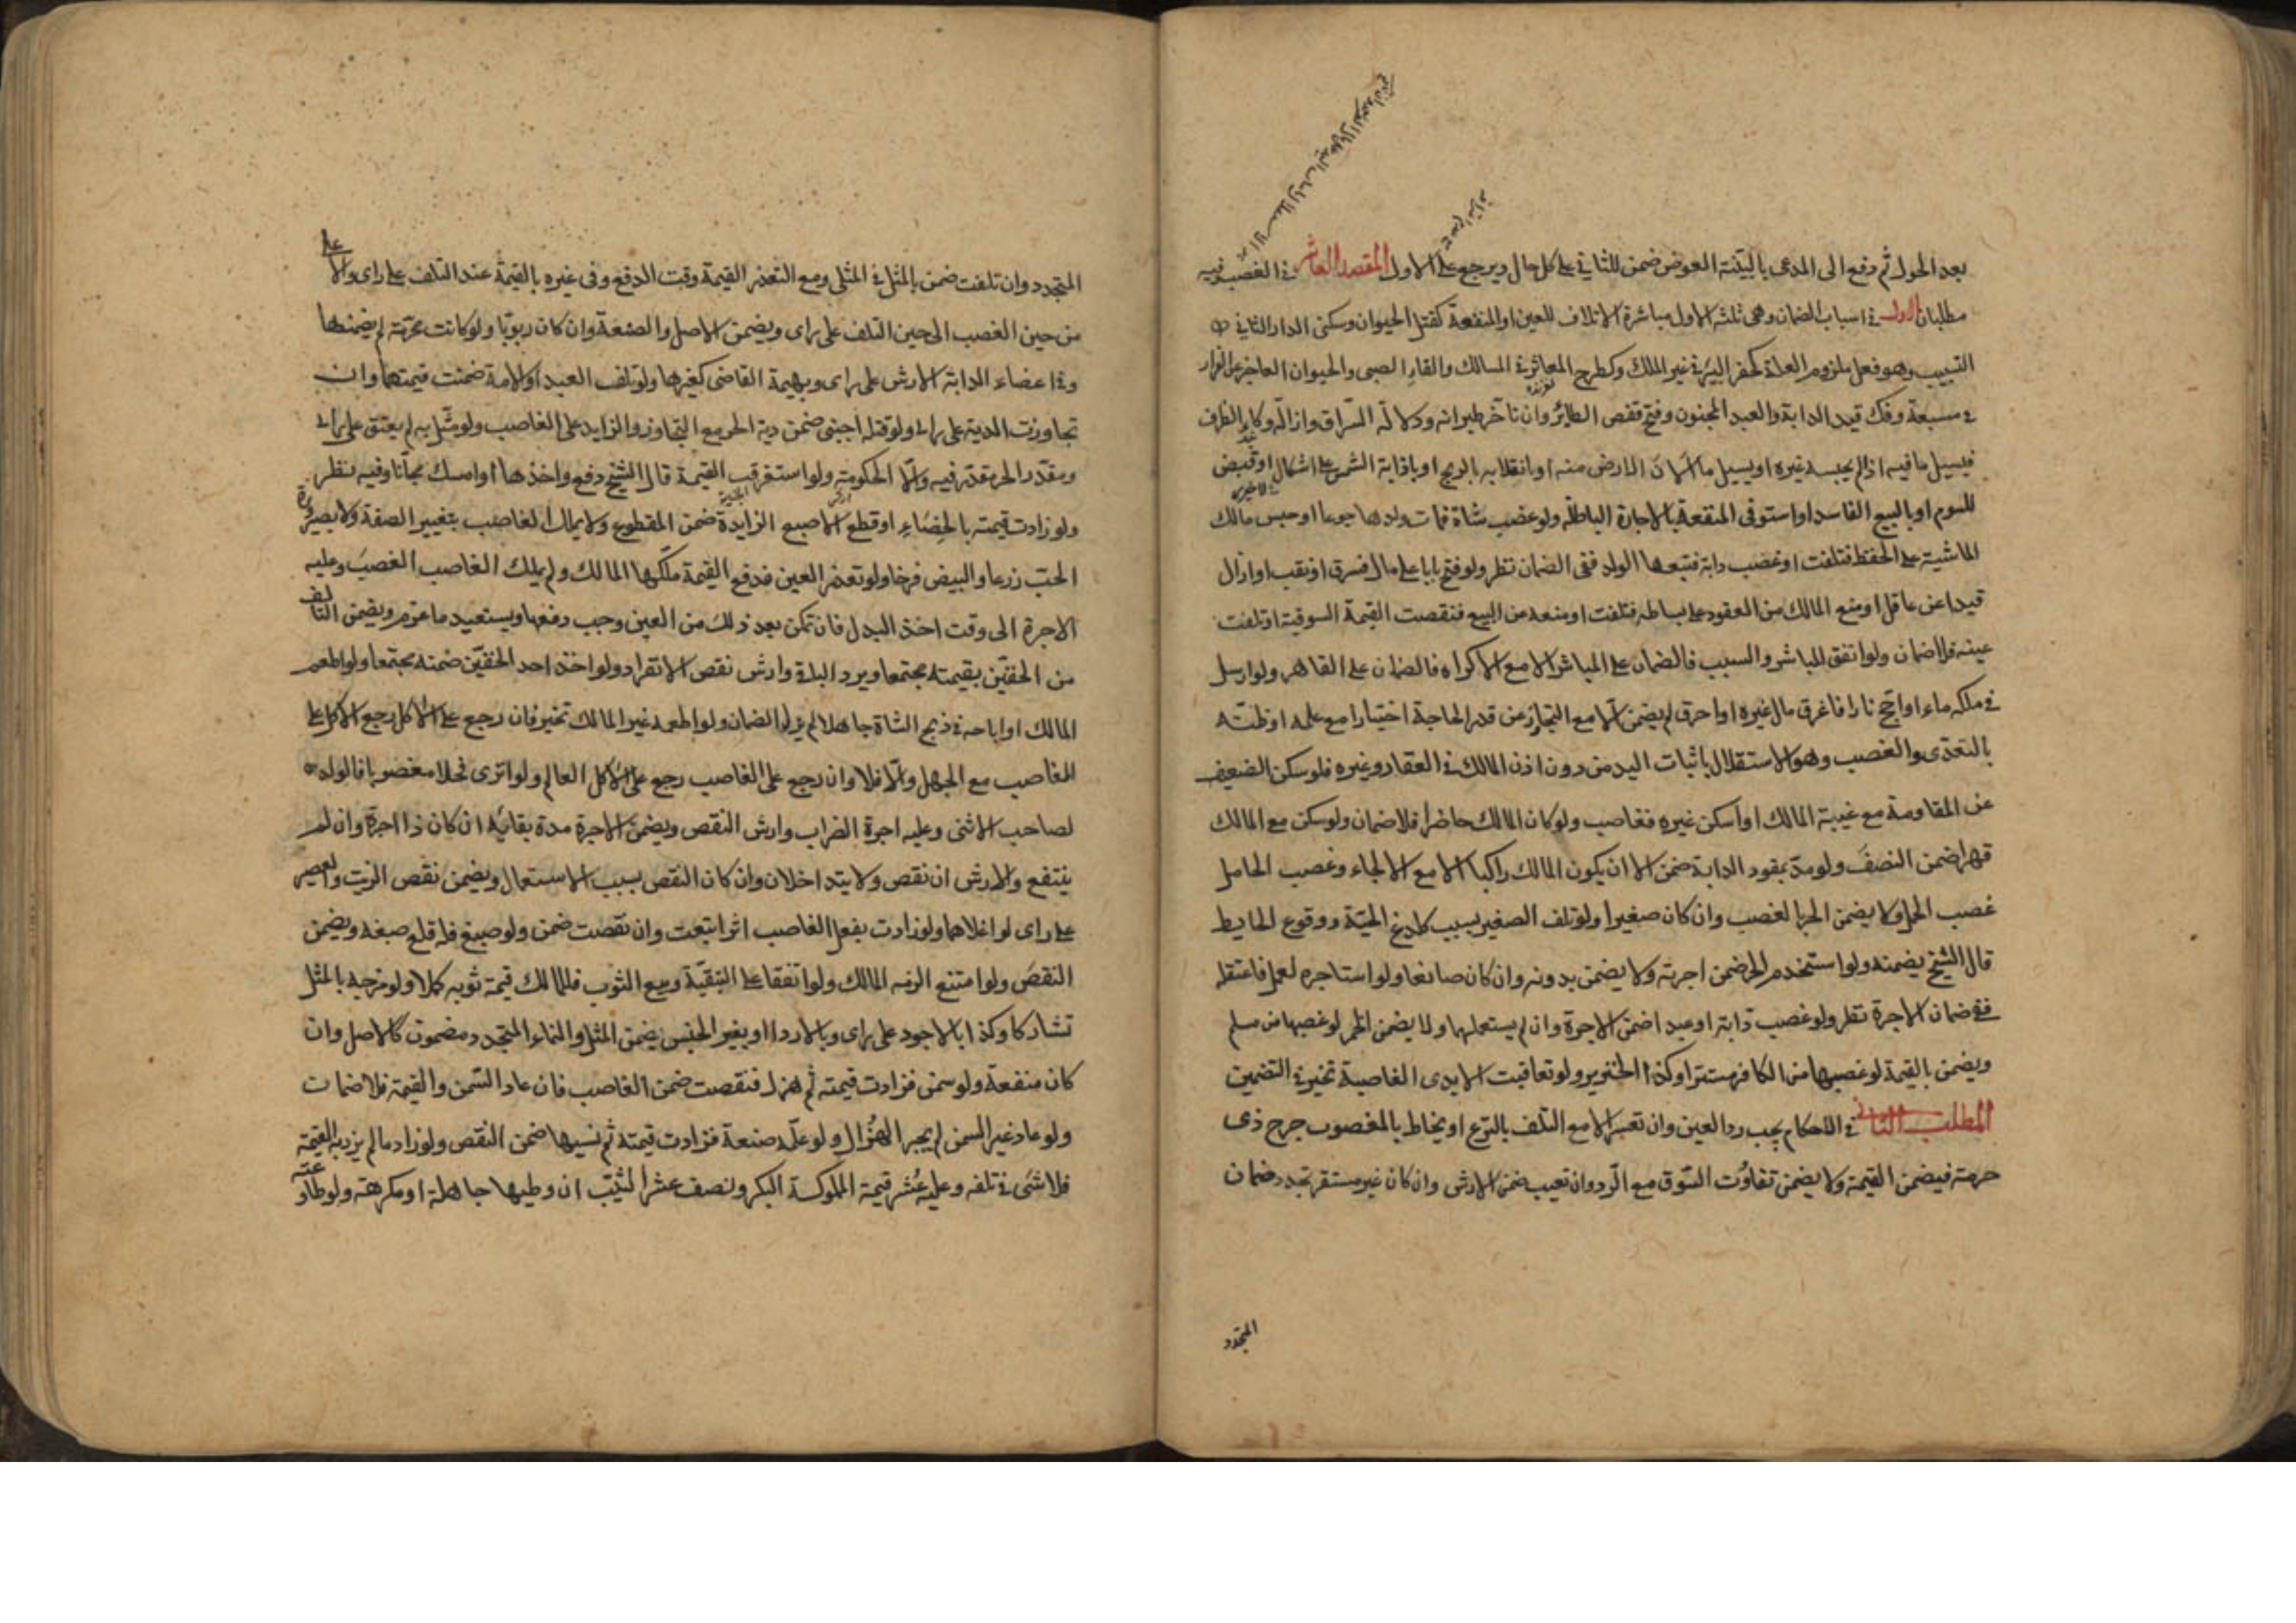 بعد الحول ثم دفع الى المدعى بالبينة العوض ضمن للثانى على كل حال ويرجع على الاول المقصد العاشر فى الغصب وفيه
مطلبان الاول فى اسباب الضمان وهى ثلثة الاول مباشرة الاتلاف للعين او المنفعة كقتل الحيوان وسكنى الدار الثانى
التسبيب وهو فعل ملزوم العلة كحفر البئر فى غير الملك وكطرح المعاثر فى المسالك والقاء الصبى والحيوان العاجز عن الفرار
فى مسبعة وفك قيد الدابة والعبد المجنون وفتح قفص الطائر وان تاخر طيرانه ودلالة السراق وازالة وكاء الظرف
فيسيل ما فيه اذا لم يحبسه غيره او يسيل ما الان الارض منه او بانقلابه بالريح او باذابة الشمس على اشكال او قبض
للسوم او بالبيع الفاسد او استوفى المنفعة بالاجارة الباطلة ولو غصب شاة فمات ولدها جوعا او حبس مالك
الماشية على الحفظ فتلفت او غصب دابة فتبعها الولد ففى الضمان نظر ولو فتح بابا على مال فسرق او نقب او ازال
قيدا عن عاقل او منع المالك من القعود على بساطه فتلفت او منعه من البيع فنقصت القيمة السوقية او تلفت
عينه فلا ضمان ولو اتفق المباشر والسبب فالضمان على المباشر الا مع الاكراه فالضمان على القاهر ولو ارسل
فى ملكه ماء او اجج نارا فاغرق مال غيره او احرق لم يضمن الا مع التجاوز عن قدر الحاجة اختيارا مع علمه او ظنه
بالتعدى والغصب وهو الاستقلال باثبات اليد من دون اذن المالك فى العقار وغيره فلو سكن الضعيف
عن المقاومة مع غيبة المالك او اسكن غيره فغاصب ولو كان المالك حاضرا فلا ضمان ولو سكن مع المالك
قهرا ضمن النصف ولو مد بمقود الدابة ضمن الا ان يكون المالك راكبا الا مع الالجاء وغصب الحامل
غصب الحمل ولا يضمن الحر بالغصب وان كان صغيرا ولو تلف الصغير بسبب كلدغ الحية ووقوع الحايط
قال الشيخ يضمنه ولو استخدم الحر ضمن اجرته ولا يضمن بدونه وان كان صانعا ولو استاجره لعمل فاعتقله
ففى ضمان الاجرة نظر ولو غصب دابة او عبدا ضمن الاجرة وان لم يستعملها ولا يضمن الخمر لو غصبها من مسلم
ويضمن بالقيمة لو غصبها من الكافر مستترا وكذا الخنزير ولو تعاقبت الايدى الغاصبة تخير فى التضمين
المطلب الثانى فى الاحكام يجب رد العين وان تعسر الا مع التلف بالنزع او يخاط بالمغصوب جرح ذى
حرمة فيضمن القيمة ولا يضمن تفاوت السوق مع الرد وان تعيب ضمن الارش وان كان غير مستقر تجدد ضمان
المتجدد
المتجدد وان تلفت ضمن بالمثل فى المثلى ومع التعذر القيمة وقت الدفع وفى غيره بالقيمة عند التلف على راى والاعلى
من حين الغصب الى حين التلف على راى ويضمن الاصل والصنعة وان كان ربويا ولو كانت محرمة لم يضمنها
وفى اعضاء الدابة الارش على راى وبهيمة القاضى كغيرها ولو تلف العبد او الامة ضمنت قيمتهما وان
تجاوزت الدية على راى ولو قتله اجنبى ضمن دية الحر مع التجاوز والزايد على الغاصب ولو مثل به لم يعتق على راى
ومقدر الحر مقدر فيه والا الحكومة ولو استغرقت القيمة قال الشيخ دفع واخذها او امسك مجانا وفيه نظر
ولو زادت قيمته بالخصاء او قطع الاصبع الزايدة ضمن المقطوع ولا يملك الغاصب بتغيير الصفة ولا بصيرورة
الحب زرعا والبيض فرخا ولو تعذر العين فدفع القيمة ملكها المالك ولم يملك الغاصب الغصب وعليه
الاجرة الى وقت اخذ البدل فان تمكن بعد ذلك من العين وجب دفعها ويستعيد ما غرم ويضمن التالف
من الخفين بقيمته مجتمعا ويرد الباقى وارش نقص الانفراد ولو اخذ احد الخفين ضمنه مجتمعا ولو اطعمه
المالك او اباحه فى ذبح الشاة جاهلا لم يزل الضمان ولو اطعمه غير المالك تخير فان رجع على الاكل رجع الاكل على
الغاصب مع الجهل والا فلا وان رجع على الغاصب رجع على الاكل العالم ولو انزى فحلا مغصوبا فالولد
لصاحب الانثى وعليه اجرة الضراب وارش النقص ويضمن الاجرة مدة بقائه ان كان ذا اجرة وان لم
ينتفع والارش ان نقص ولا يتداخلان وان كان النقص بسبب الاستعمال ويضمن نقص الزيت والعصير
على راى لو اغلاهما ولو زادت بفعل الغاصب اثرا تبعت وان نقصت ضمن ولو صبغ فله قلع صبغه ويضمن
النقص ولو امتنع الزمه المالك ولو اتفقا على التبقية وبيع الثوب فللمالك قيمة ثوبه كملا ولو مزجه بالمثل
تشاركا وكذا بالاجود على راى وبالاردا او بغير الجنس يضمن المثل والنماء المتجدد مضمون كالاصل وان
كان منفعة ولو سمن فزادت قيمته ثم هزل فنقصت ضمن الغاصب فان عاد السمن والقيمة فلا ضمان
ولو عاد غير السمن لم يجبر الهزال ولو علمه صنعة فزادت قيمته ثم نسيها ضمن النقص ولو زاد ما لم يزد به القيمة
فلا شئ فى تلفه وعليه عشر قيمة المملوكة البكر ونصف عشر الثيب ان وطيها جاهلة او مكرهة ولو طاوعته